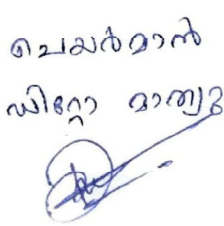 ചെയർമാൻ
ഡിറ്റോ മാത്യു